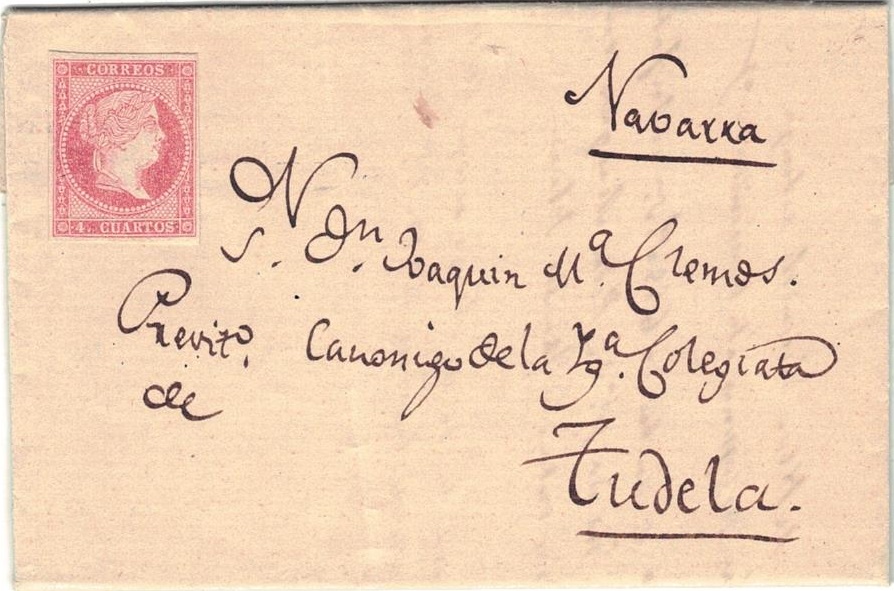 CORREOS
4. CUARTOS
Navarra
S. Dn. Joaquin Ma. Clemos.
Previto. Canonigo de la Yga. Colegiata
de
Tudela.